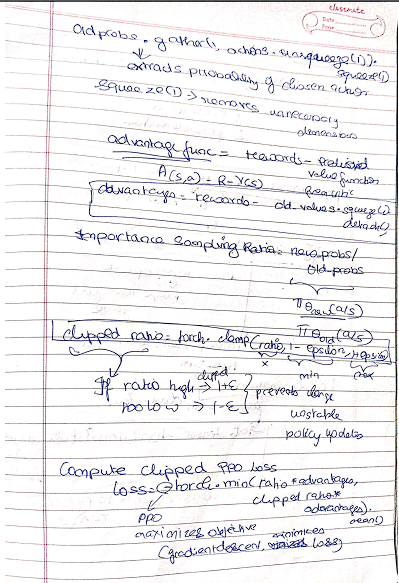 classmate
Date
Page
oldprobs.gather(1, actions.unsqueeze(1)).
squeeze(1)
extracts probability of chosen action
squeeze(1) → removes unnecessary
dimensions
advantage func = rewards - Predicted
value function
A(s,a) = R - V(s)
advantages = rewards - old-values.squeeze().
detach()
Importance Sampling Ratio = new probs/
old-probs
πθnew(a/s)
πθold(a/s)
clipped ratio = torch.clamp(ratio, 1-epsilon, 1+epsilon)
x min max
If ratio high clipped → 1+ε
too low → 1-ε
prevents large
unstable
policy updates
Compute Clipped PPO Loss
loss = -torch.min(ratio*advantages,
clipped ratio*
advantages).
mean()
PPO
maximizes objective
(gradient descent, minimizes loss)